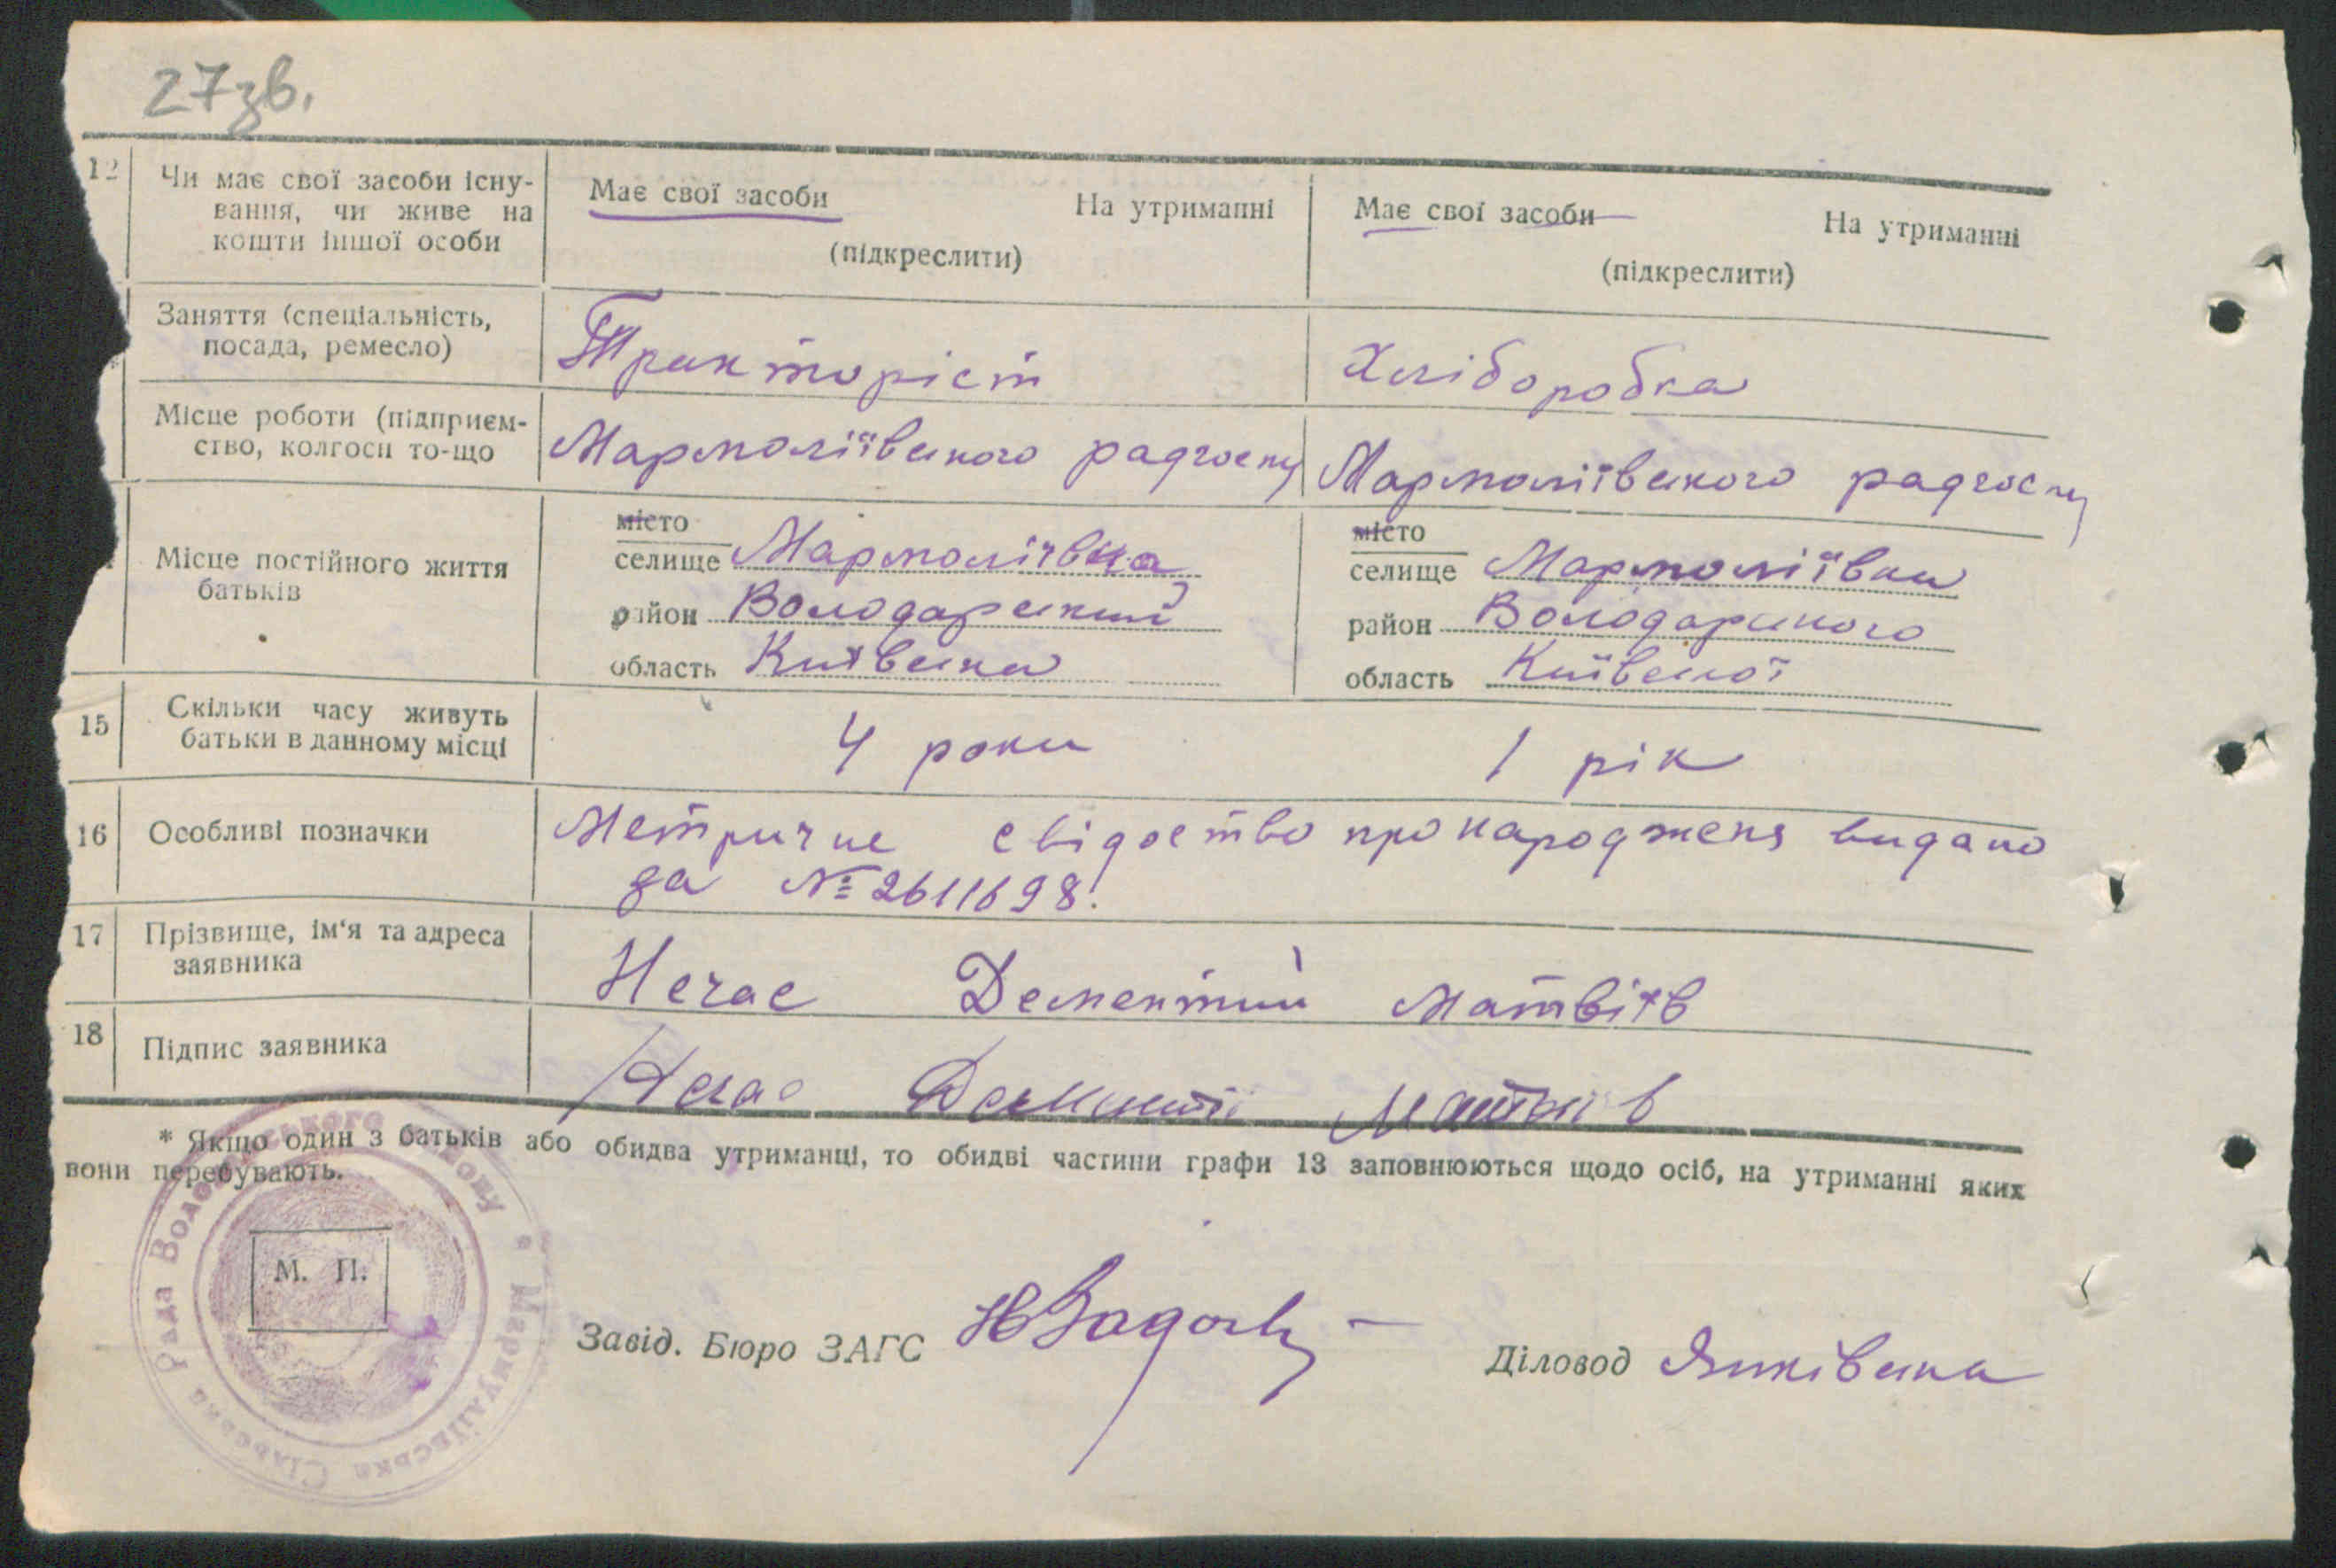 27зв.
12 Чи має свої засоби існу- Має свої засоби На утриманні Має свої засоби На утриманні
вання, чи живе на
кошти іншої особи (підкреслити) (підкреслити)
Заняття (спеціальність, Тракторіст Хліборобка
посада, ремесло)
Місце роботи (підприєм- Мармоліївського радгоспу Мармоліївського радгоспу
ство, колгосп то-що
місто місто
Місце постійного життя селище Мармоліївка селище Мармоліївки
батьків район Володарський район Володарського
область Київська область Київської
15 Скільки часу живуть 4 роки 1 рік
батьки в данному місці
16 Особливі позначки Метричне свідоство про народженя видано
за № 2611698.
17 Прізвище, ім'я та адреса Нечае Дементий Матвіїв
заявника
18 Підпис заявника Нечае Матвіїв
* Якщо один з батьків або обидва утриманці, то обидві частини графи 13 заповнюються щодо осіб, на утриманні яких
вони перебувають.
М. П.
Рада Володарського району * Мармуліївська Сільська
Завід. Бюро ЗАГС
Діловод Янківська